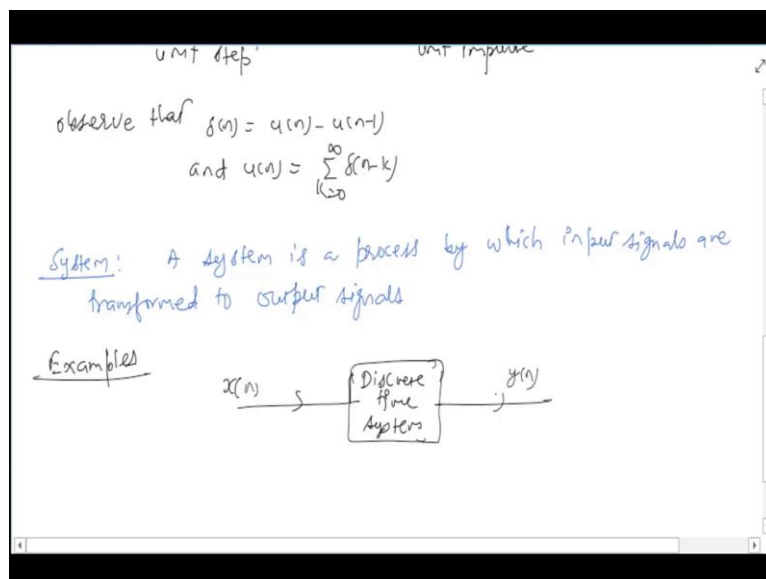 unit step unit impulse
observe that δ(n) = u(n) - u(n-1)
and u(n) = ∑_{k=0}^{∞} δ(n-k)
System: A system is a process by which input signals are
transformed to output signals
Examples
x(n) Discrete y(n)
time
system